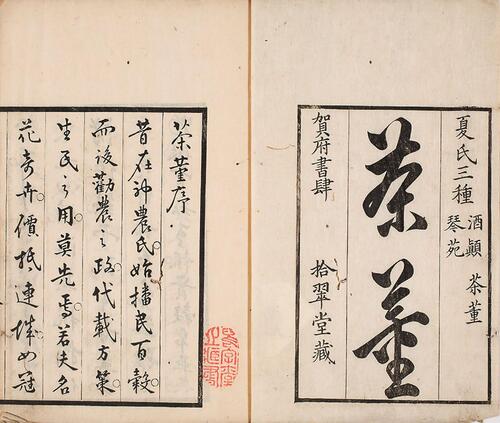 夏氏三種 酒顛 琴苑 茶董
茶董
賀府書肆 拾翠堂藏
茶董序
昔在神農氏始播民百穀
而後勸農之政代載方策
生民之用莫先焉若夫名
花奇卉價抵連城如冠